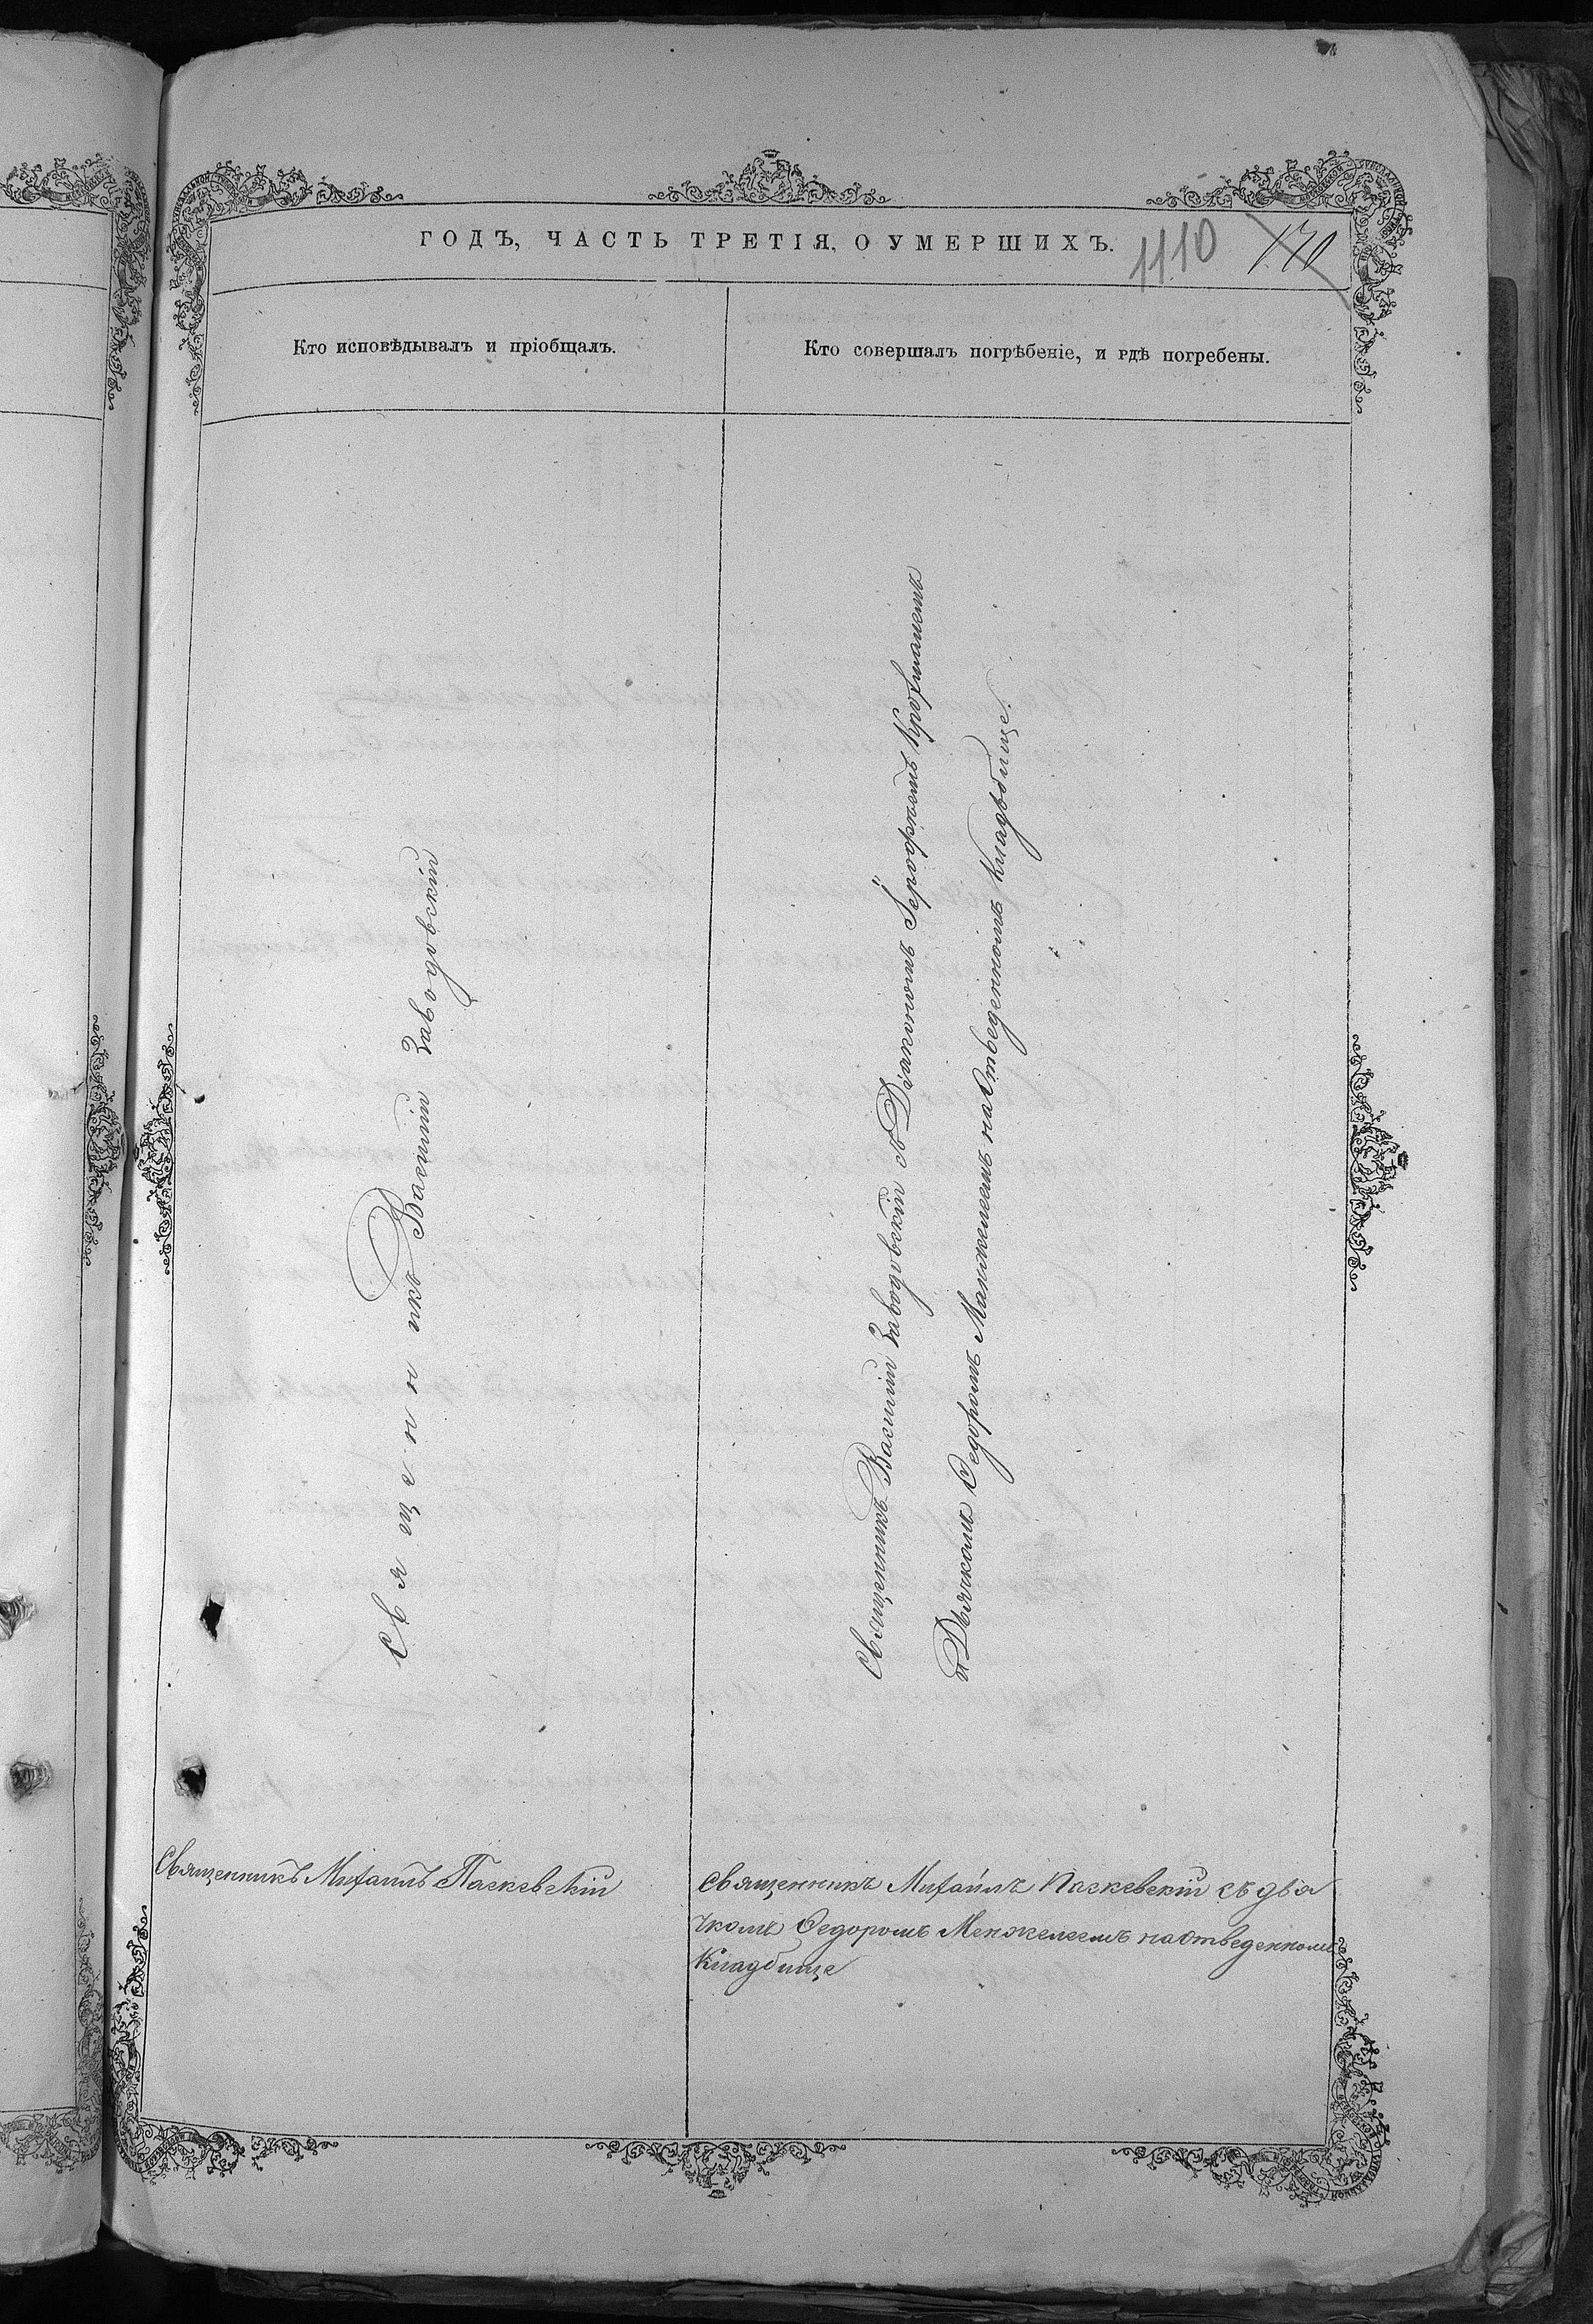 ГОДЪ, ЧАСТЬ ТРЕТІЯ, О УМЕРШИХЪ.
1110
170
Кто исповѣдывалъ и пріобщалъ.
Кто совершалъ погрѣбеніе, и гдѣ погребены.
Священникъ Василій Заводовскій
Священникъ Василій Заводовскій съ Діакономъ
и Дьячкомъ Федоромъ Манжелеемъ на Отведенномъ Кладбище.
Священникъ Михаилъ Паскевскій
Священникъ Михаилъ Паскевскій съ дья
чкомъ Федоромъ Менжелеемъ на Отведенномъ
Кладбище